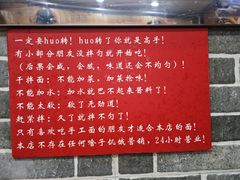 一定要huo转！huo转了你就是高手！
有小部分朋友没拌匀就开始吃！
（后果会咸，会腻，味道还会不均匀）！
干拌面：不能加菜，加菜抢味！
不能加水：加水就巴不起来酱料了！
不能太软：软了无劲道！
赶紧拌：久了就拌不匀了！
只有喜欢吃手工面的朋友才适合本店的面！
本店不存在任何啥子机械营销，24小时营业！